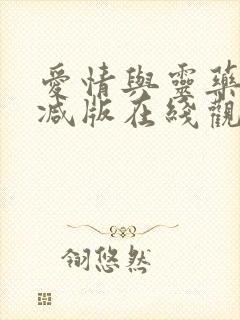 愛情與靈藥
減版在綫觀
翎悠然